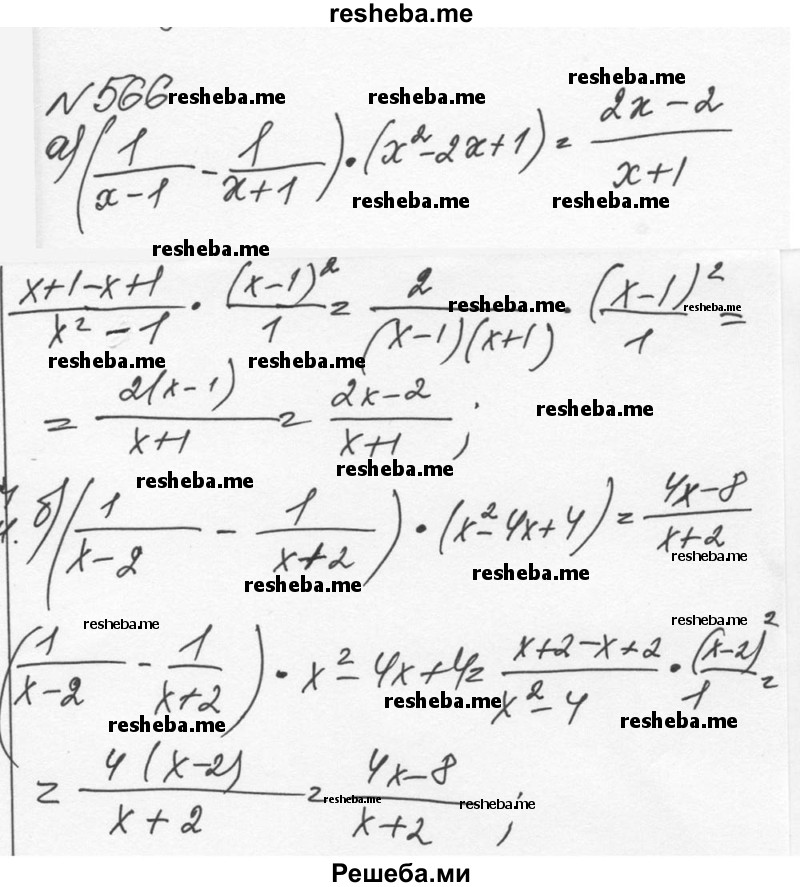 resheba.me
№566 resheba.me resheba.me resheba.me
а) (1/(x-1) - 1/(x+1)) • (x²-2x+1) = (2x-2)/(x+1)
resheba.me resheba.me
resheba.me
(x+1-x+1)/(x²-1) • (x-1)²/1 = 2/((x-1)(x+1)) • (x-1)²/1 =
resheba.me resheba.me
resheba.me resheba.me
= 2(x-1)/(x+1) = (2x-2)/(x+1);
resheba.me
resheba.me resheba.me
б) (1/(x-2) - 1/(x+2)) • (x²-4x+4) = (4x-8)/(x+2)
resheba.me
resheba.me resheba.me
resheba.me resheba.me
(1/(x-2) - 1/(x+2)) • x²-4x+4 = (x+2-x+2)/(x²-4) • (x-2)²/1 =
resheba.me resheba.me resheba.me
= 4(x-2)/(x+2) = (4x-8)/(x+2);
resheba.me resheba.me
Решеба.ми